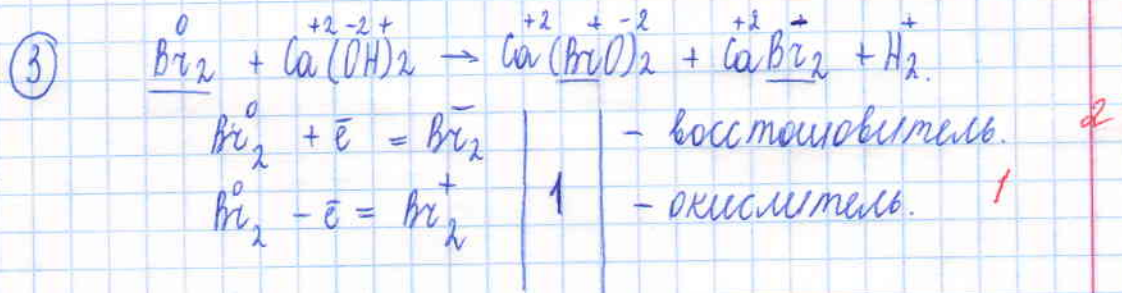 0 +2 -2 + +2 + -2 +2 + +
3 Br2 + Ca(OH)2 → Ca(BrO)2 + CaBr2 + H2.
Br2⁰ + ē = Br2⁻ - восстановитель. 2
Br2⁰ - ē = Br2⁺ 1 - окислитель. 1